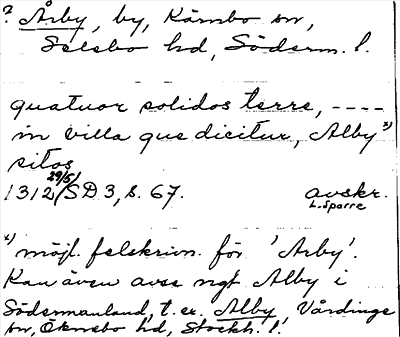 ? Årby, by, Kärnbo sn,
Selebo hd, Söderm. l.
quatuor solidos terre, ----
in villa que dicitur, Alby x)
sitos
1312 29/5/SD 3, s. 67. avskr.
L. Sparre
x) möjl. felskrivn. för 'Arby'.
Kan även avse ngt Alby i
Södermanland, t. ex. Alby, Vårdinge
sn, Öknebo hd, Stockh. l.